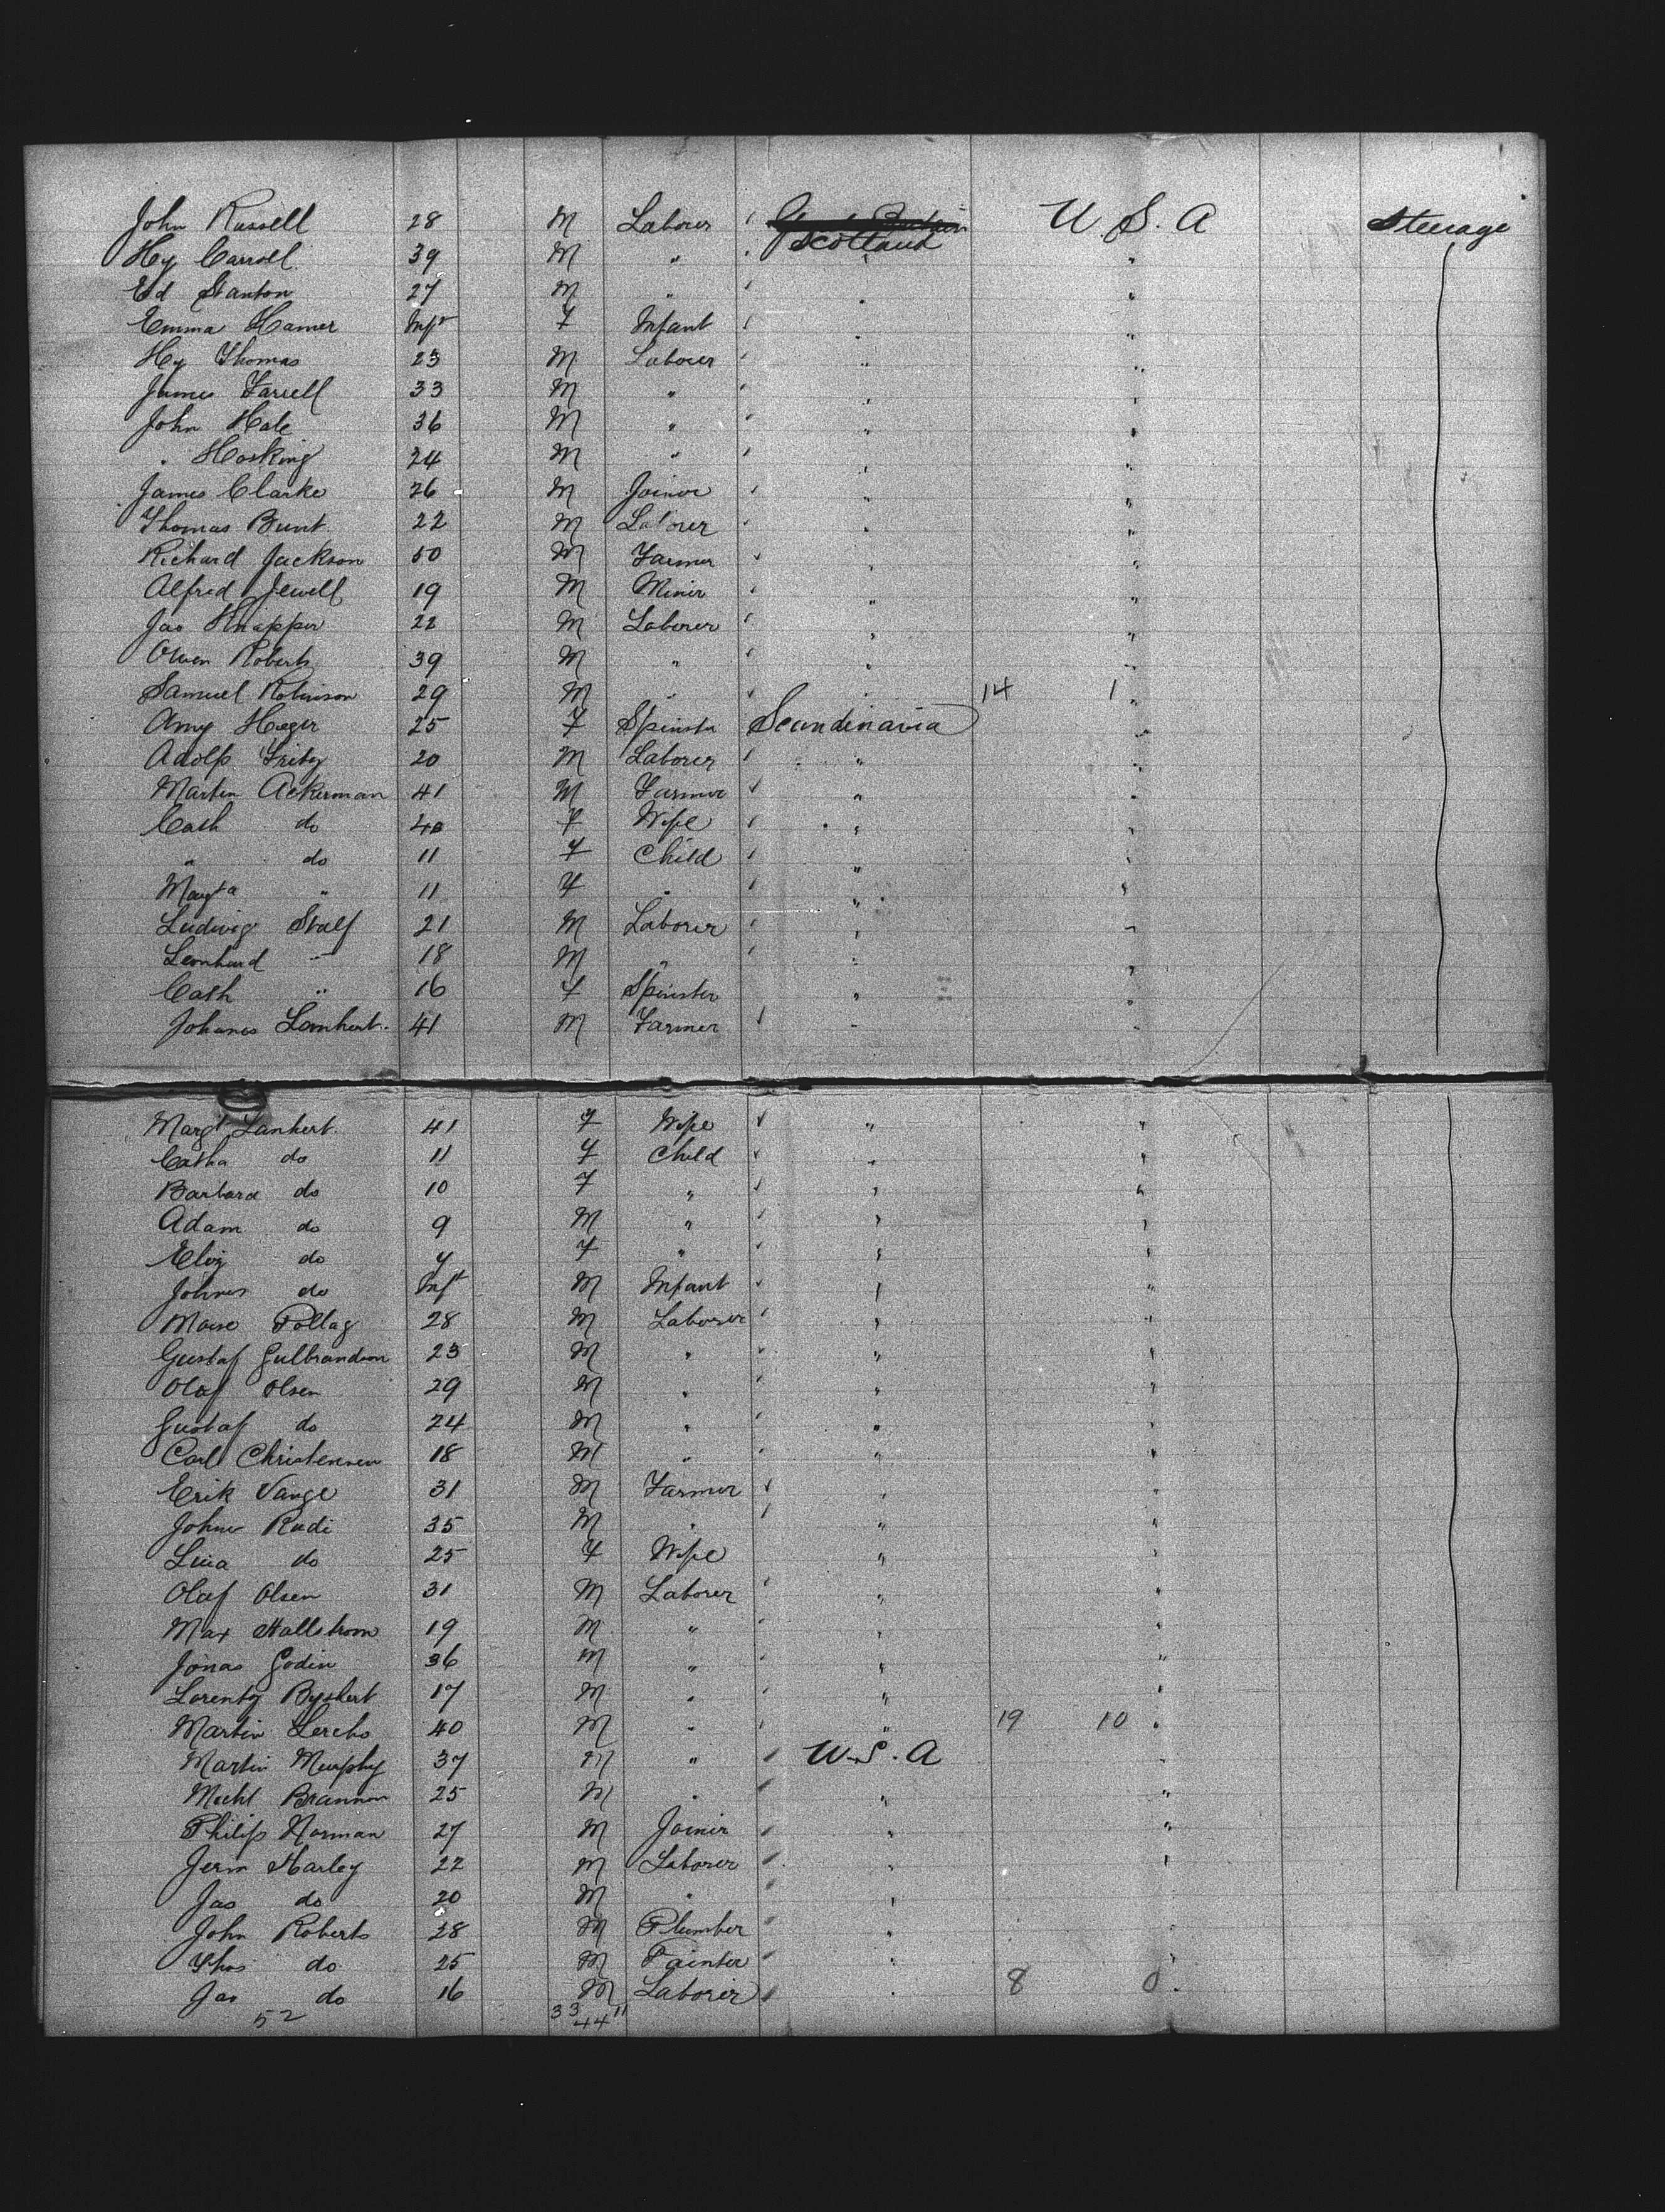 John Russell 28 M Laborer Great Britain Scotland U. S. A Steerage
Hy Carroll 39 M " " "
Ed Stanton 27 M " " "
Emma Hamer Inft F Infant " "
Hy Thomas 23 M Laborer " "
James Farrell 33 M " " "
John Hale 36 M " " "
" Hosking 24 M " " "
James Clarke 26 M Joiner " "
Thomas Bunt 22 M Laborer " "
Richard Jackson 50 M Farmer " "
Alfred Jewell 19 M Miner " "
Jas Knapper 22 M Laborer " "
Owen Roberts 39 M " " "
Samuel Robinson 29 M " " 14 1 "
Amy Heger 25 F Spinster Scandinavia "
Adolf Fritz 20 M Laborer " "
Martin Ackerman 41 M Farmer " "
Cath do 40 F Wife " "
" do 11 F Child " "
Magta " 11 F " " "
Ludwig Stalf 21 M Laborer " "
Leonhard " 18 M " " "
Cath " 16 F Spinster " "
Johanes Lanhert 41 M Farmer " "
Margt Lanhert 41 F Wife " "
Catha do 11 F Child " "
Barbara do 10 F " " "
Adam do 9 M " " "
Eliz do 4 F " " "
Johnes do Inft M Infant " "
28 M Laborer " "
Gustaf Gulbrandson 23 M " " "
Olaf Olsen 29 M " " "
Gustaf do 24 M " " "
Carl Christensen 18 M " " "
Erik Vange 31 M Farmer " "
John Rudi 35 M " " "
Lina do 25 F Wife " "
Olaf Olsen 31 M Laborer " "
Max Hallstrom 19 M " " "
Jonas Godin 36 M " " "
Lorentz 17 M " " "
Martin Lerchs 40 M " " 19 10 "
Martin Murphy 37 M " U.S.A "
Michl Brannon 25 M " " "
Philip Norman 27 M Joiner " "
Jerm Harley 22 M Laborer " "
Jas do 20 M " "
John Roberts 28 M Plumber " "
Thos do 25 M Painter " "
Jas do 16 M Laborer " 8 0 "
52 33 11
44